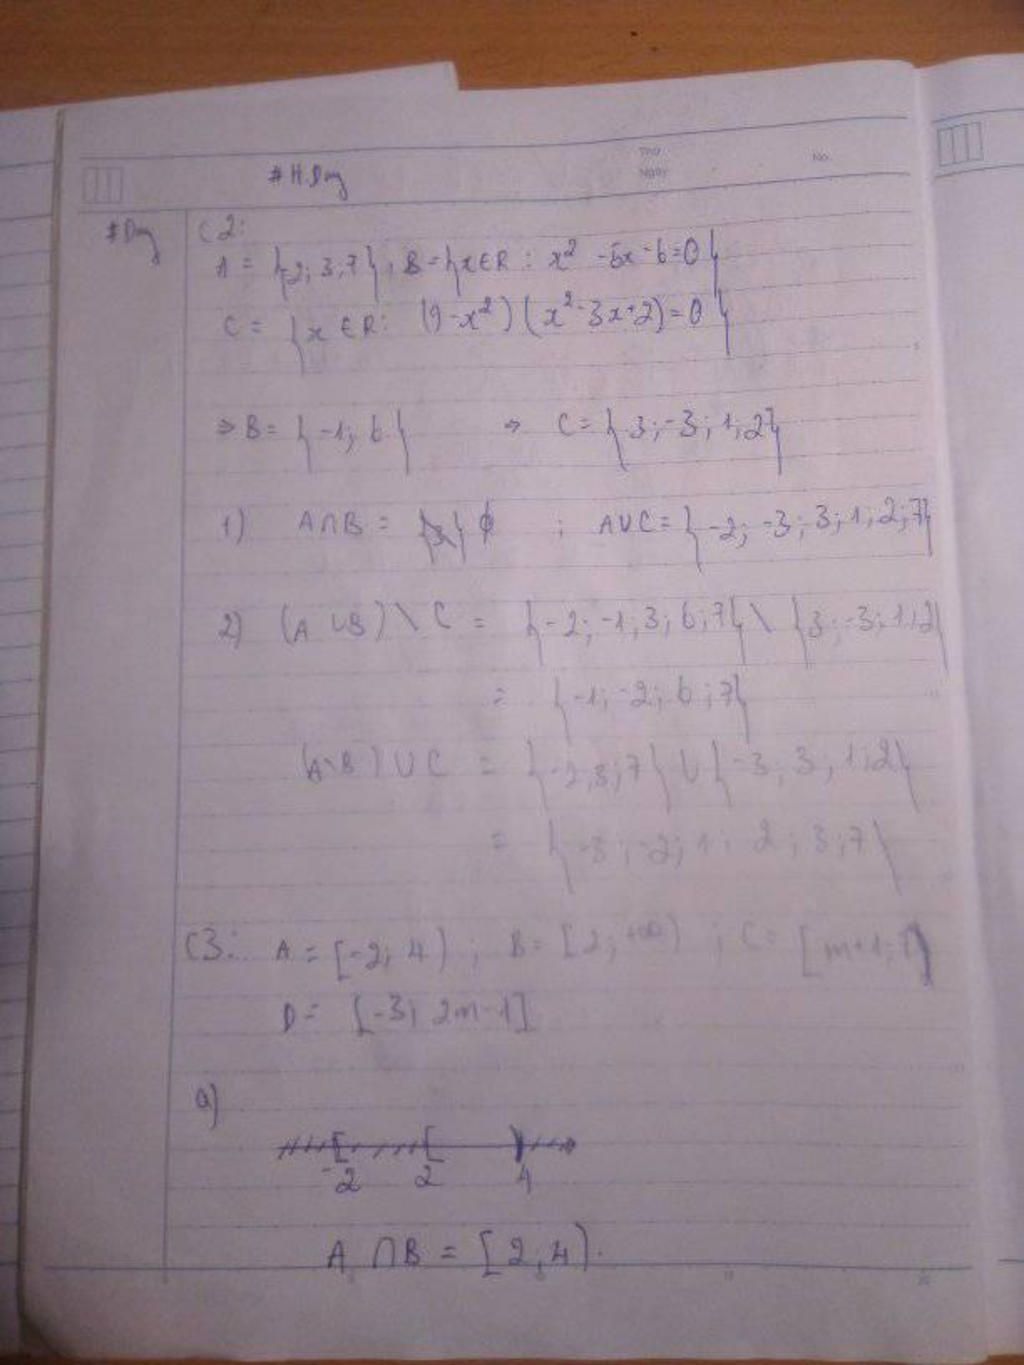 Thứ
No.
# H.Day
Ngày
# Day
C2:
A = {-2; 3; 7}, B = {x∈R : x² - 5x - 6 = 0}
C = {x ∈ R : (9 - x²)(x² - 3x + 2) = 0}
⇒ B = {-1; 6} ⇒ C = {3; -3; 1; 2}
1) A∩B = ∅ ; A∪C = {-2; -3; 3; 1; 2; 7}
2) (A ∪ B) \ C = {-2; -1; 3; 6; 7} \ {3; -3; 1; 2}
= {-1; -2; 6; 7}
(A \ B) ∪ C = {-2; 3; 7} ∪ {-3; 3; 1; 2}
= {-3; -2; 1; 2; 3; 7}
C3: A = [-2; 4) ; B = [2; +∞) ; C = [m+1;
D = [-3; 2m-1]
a)
-2 2 4
A ∩ B = [2, 4).